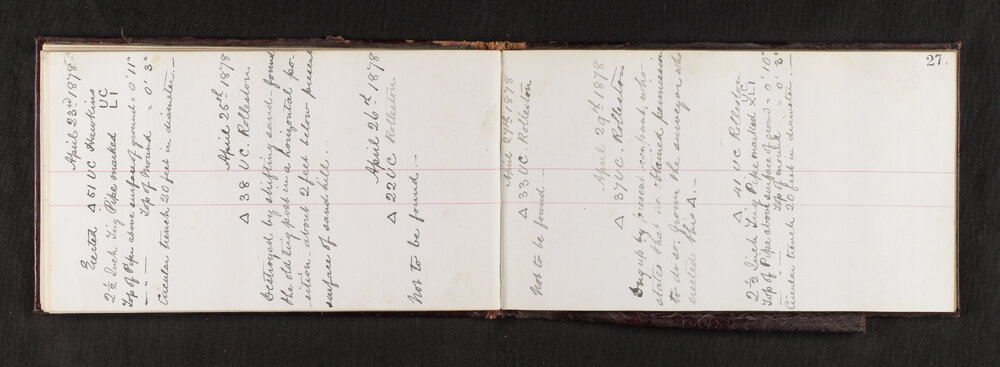 April 23rd 1878
Erected △ 51 UC Hawkins
2½ Inch Iron Pipe marked UC LI
Top of Pipe above surface of ground = 0' 11"
" — " — Top of Mound = 0' 3"
Circular trench 20 feet in diameter. —
April 25th 1878
△ 38 U.C. Rolleston
Destroyed by shifting sand – found
the old Trig post in a horizontal po-
-sition – about 2 feet below present
surface of sand hill..
April 26th 1878
△ 22 UC Rolleston
Not to be found —
27.
April 27th 1878
△ 33 UC Rolleston
Not to be found —
April 29th 1878
△ 37 UC Rolleston
Dug up by present occupant, who
states that he obtained permission
to do so, from the surveyor who
erected this △. —
△. 41 UC Rolleston
2½ Inch Pipe marked UC XLI
Top of Pipe above surface of ground = 0' 10"
Top of mound = 0' 3"
Circular trench 20 feet in diameter. —